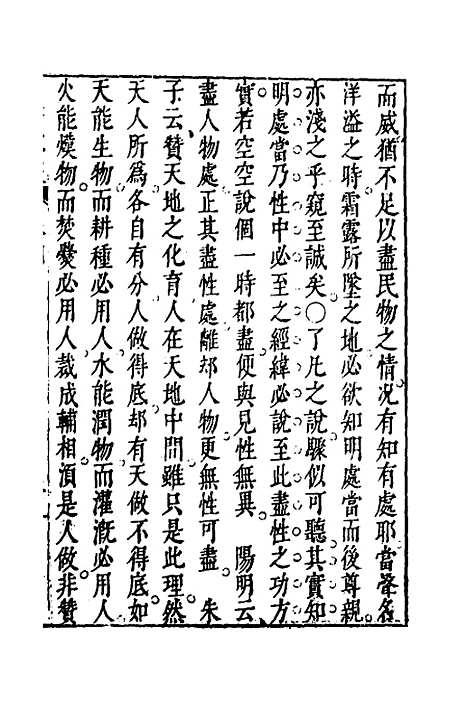 而威猶不足以盡民物之情況有知有處耶當聲名
洋溢之時霜露所墜之地必欲知明處當而後尊親
亦淺之乎窺至誠矣○了凡之說驟似可聽其實知
明處當乃性中必至之經緯必說至此盡性之功方
實若空空說個一時都盡便與見性無異　陽明云
盡人物處正其盡性處離却人物更無性可盡　朱
子云贊天地之化育人在天地中間雖只是此理然
天人所爲各自有分人做得底却有天做不得底如
天能生物而耕種必用人水能潤物而灌漑必用人
火能熯物而焚爨必用人裁成輔相須是人做非贊